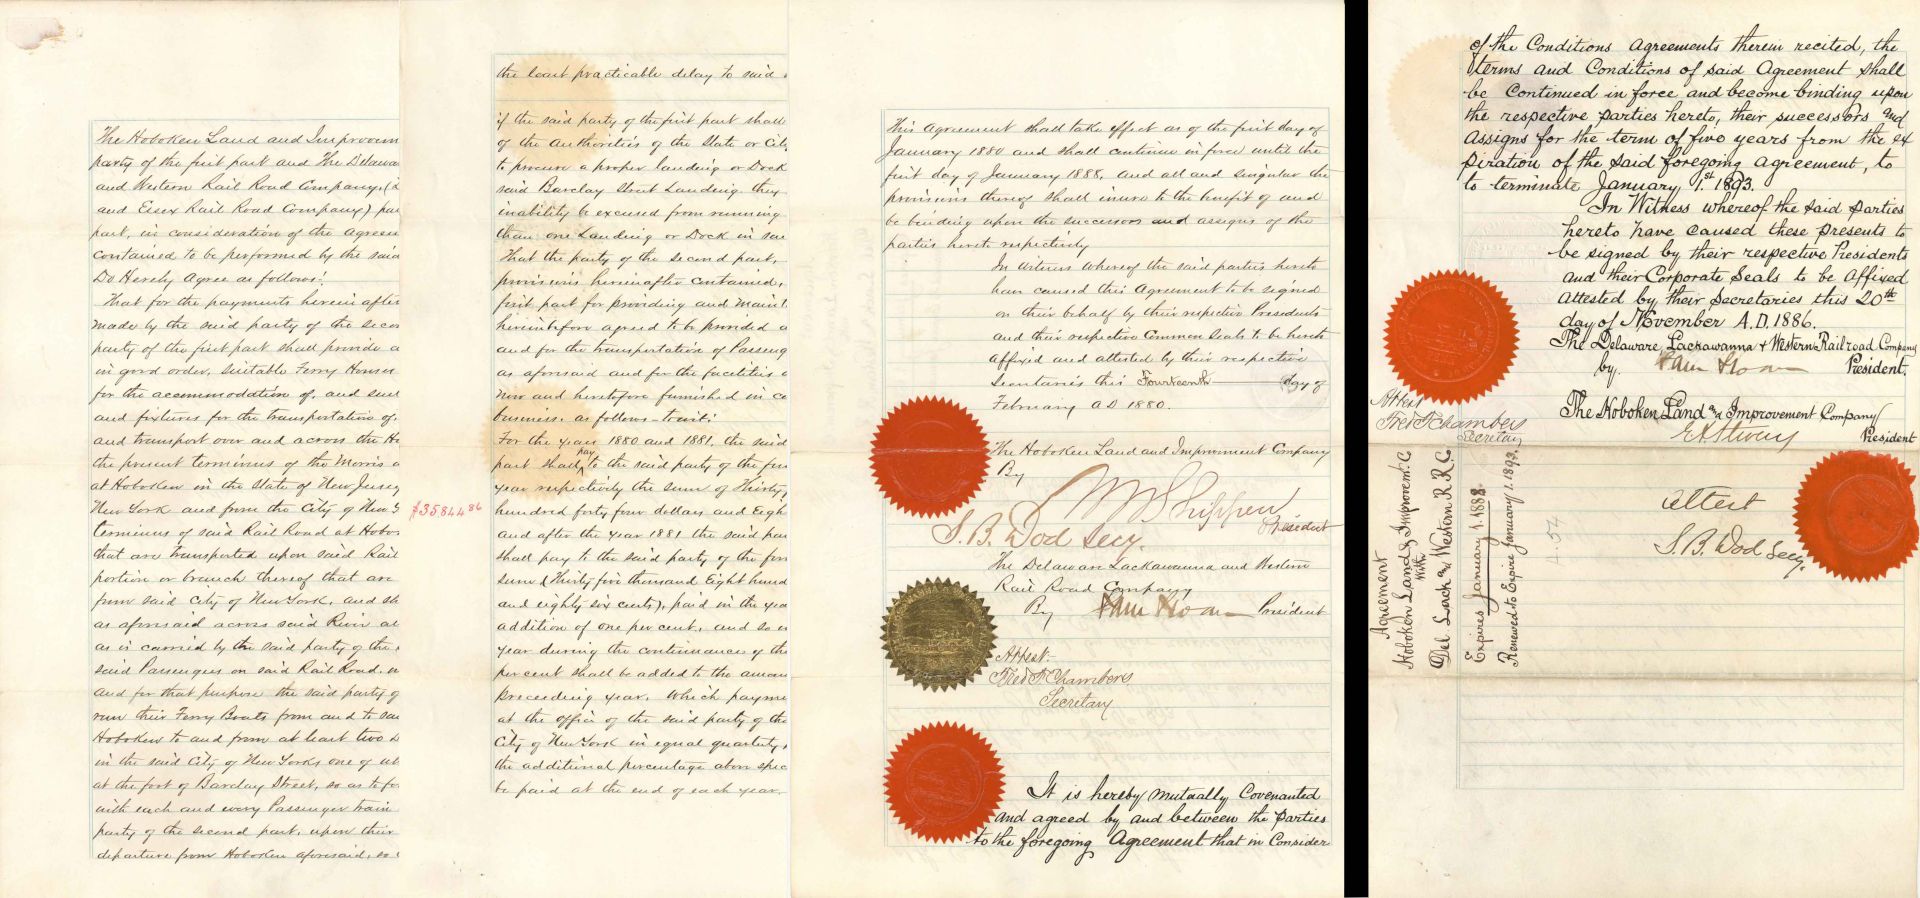 The Hoboken Land and Improvem
party of the first part and The Delawa
and Western Rail Road Company, (
and Essex Rail Road Company) par
part, in consideration of the agreem
contained to be performed by the said
Do Hereby Agree as follows:
That for the payments herein after
made by the said party of the secon
party of the first part shall provide a
in good order, suitable Ferry Houses
for the accommodation of, and suit
and fixtures for the transportation of,
and transport over and across the H
the present terminus of the Morris a
at Hoboken in the State of New Jersey
New York and from the City of New Y
terminus of said Rail Road at Hobo
that are transported upon said Rail
portion or branch thereof that are
from said City of New York, and sh
as aforesaid across said River at
as is carried by the said party of the
said Passengers on said Rail Road. a
and for that purpose the said party of
run their Ferry Boats from and to sa
Hoboken to and from at least two
in the said City of New York one of wh
at the foot of Barclay Street, so as to
with each and every Passenger train
party of the second part, upon their
departure from Hoboken aforesaid, so
the least practicable delay to said
if the said party of the first part shall
of the authorities of the State or City
to procure a proper landing or Dock
said Barclay Street Landing they
inability be excused from running
than one Landing or Dock in said
That the party of the second part,
provisions hereinafter contained,
first part for providing and maint
hereinbefore agreed to be provided a
and for the transportation of Passeng
as aforesaid and for the facilities
now and heretofore furnished in co
business, as follows-to wit:
For the years 1880 and 1881, the said
part shall pay to the said party of the firs
year respectively the sum of Thirty
$35844 86
hundred forty four dollars and Eigh
and after the year 1881 the said par
shall pay to the said party of the firs
sum (Thirty five thousand Eight hund
and eighty six cents), paid in the yea
addition of one per cent, and so
year during the continuance of the
per cent shall be added to the amoun
preceeding year. Which payme
at the office of the said party of the
City of New York in equal quarterly
the additional percentage above spec
be paid at the end of each year.
This Agreement shall take effect as of the first day of
January 1880 and shall continue in force until the
first day of January 1888, and all and singular the
provisions thereof shall inure to the benefit of and
be binding upon the successors and assigns of the
parties hereto respectively
In witness whereof the said parties hereto
have caused this Agreement to be signed
on their behalf by their respective Presidents
and their respective Common Seals to be hereto
affixed and attested by their respective
Secretaries this Fourteenth day of
February AD 1880.
The Hoboken Land and Improvement Company
By W W Shippen
President
S. B. Dod Secy.
The Delaware Lackawanna and Western
Rail Road Company
By Sam Sloan President
Attest:
Fred F. Chambers
Secretary
It is hereby mutually Covenanted
and agreed by and between the Parties
to the foregoing Agreement that in Consider
of the Conditions Agreements therein recited, the
terms and Conditions of said Agreement shall
be Continued in force and become binding upon
the respective parties hereto, their successors and
assigns for the term of five years from the ex
piration of the said foregoing agreement, to
to terminate January 1st 1893.
In Witness whereof the said Parties
hereto have caused these presents to
be signed by their respective Presidents
and their Corporate Seals to be Affixed
attested by their Secretaries this 20th
day of November A.D. 1886.
The Delaware, Lackawanna & Western Railroad Company
by. Sam Sloan President.
Attest
Fred F Chambers
Secretary
The Hoboken Land and Improvement Company
E A Stevens President
Attest
S. B. Dod Secy.
Agreement
Hoboken Land & Improvemt. C
with
Del Lack and Western R R C
Expires January 1. 1888
Renewed to Expire January 1. 1893.
4.54